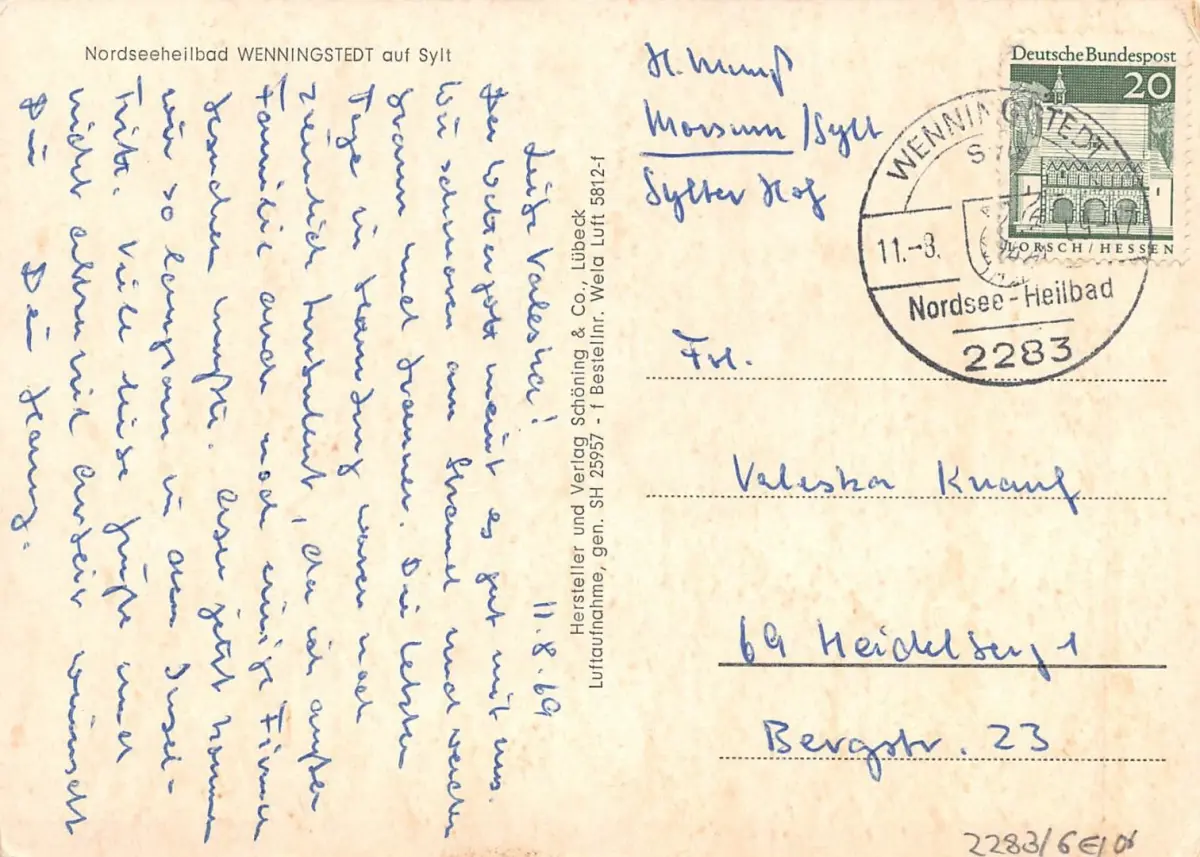 Nordseeheilbad WENNINGSTEDT auf Sylt
11.8.69
Liebe Valeska!
Der Wettergott meint es gut mit uns.
Wir schmoren am Strand und werden
braun und brauner. Die letzten
Tage in Hamburg waren noch
ziemlich turbulent, da ich außer
Familie auch noch einige Firmen
besuchen mußte. Aber jetzt kommen
wir so langsam in den Insel-
Trott. Viele liebe Grüße und
nicht allzuviel Arbeit wünscht
Dir Dein
Hersteller und Verlag Schöning & Co., Lübeck
Luftaufnahme, gen. SH 25957 - f Bestellnr. Wela Luft 5812-f
H.
Morsum/Sylt
Sylter Hof
Deutsche Bundespost
20
LORSCH/HESSEN
WENNINGSTEDT
11.-8.
Nordsee-Heilbad
2283
Frl.
Valeska Knauf
69 Heidelberg 1
Bergstr. 23
2283/6